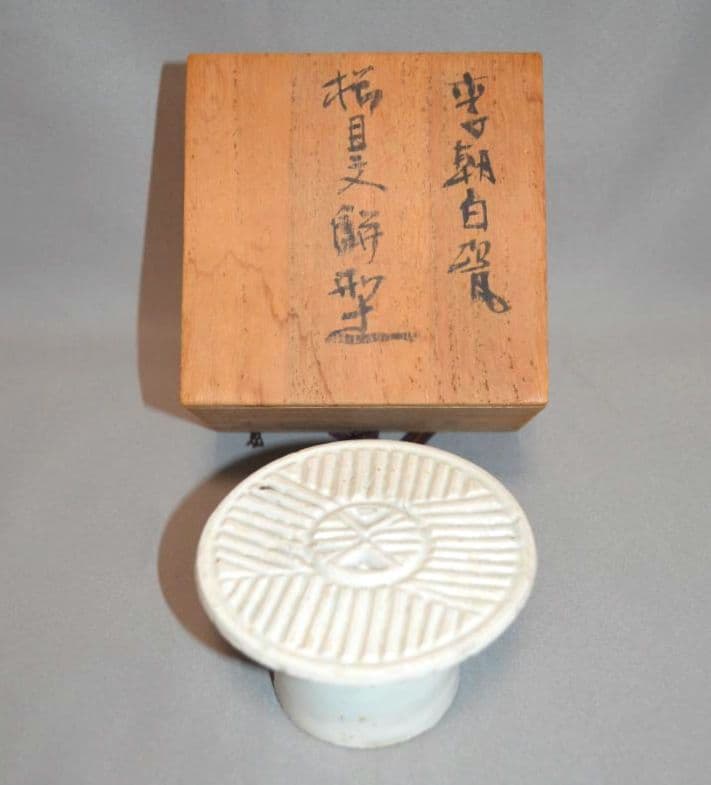 李朝白瓷
櫛目文餅型